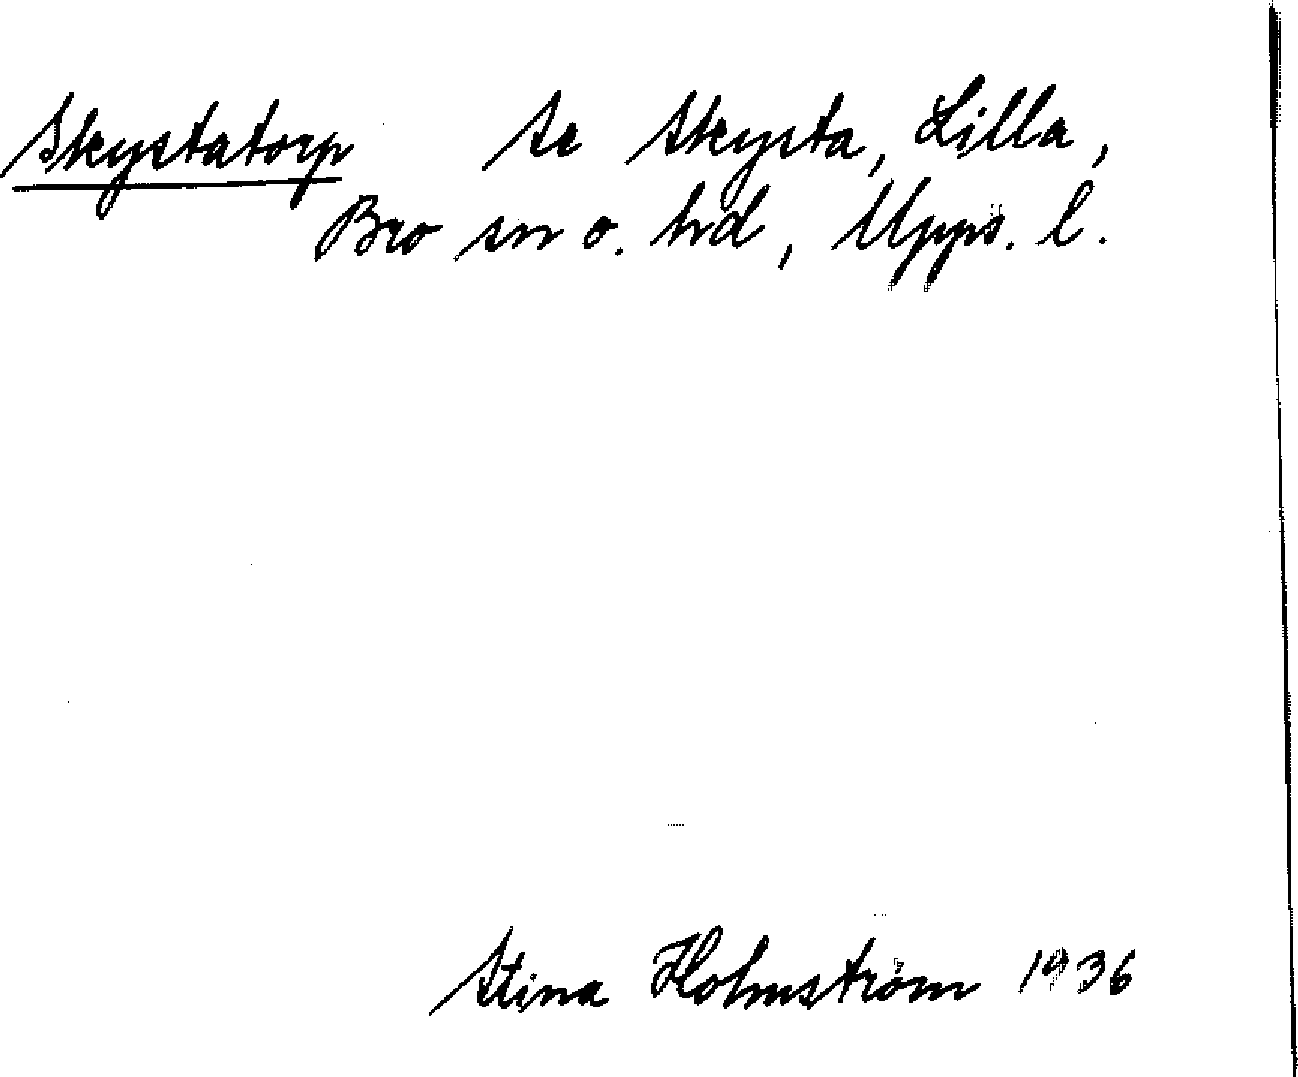 Skystatorp Se Skysta, Lilla,
Bro sn o. hd, Upps. l.
Stina Holmström 1936